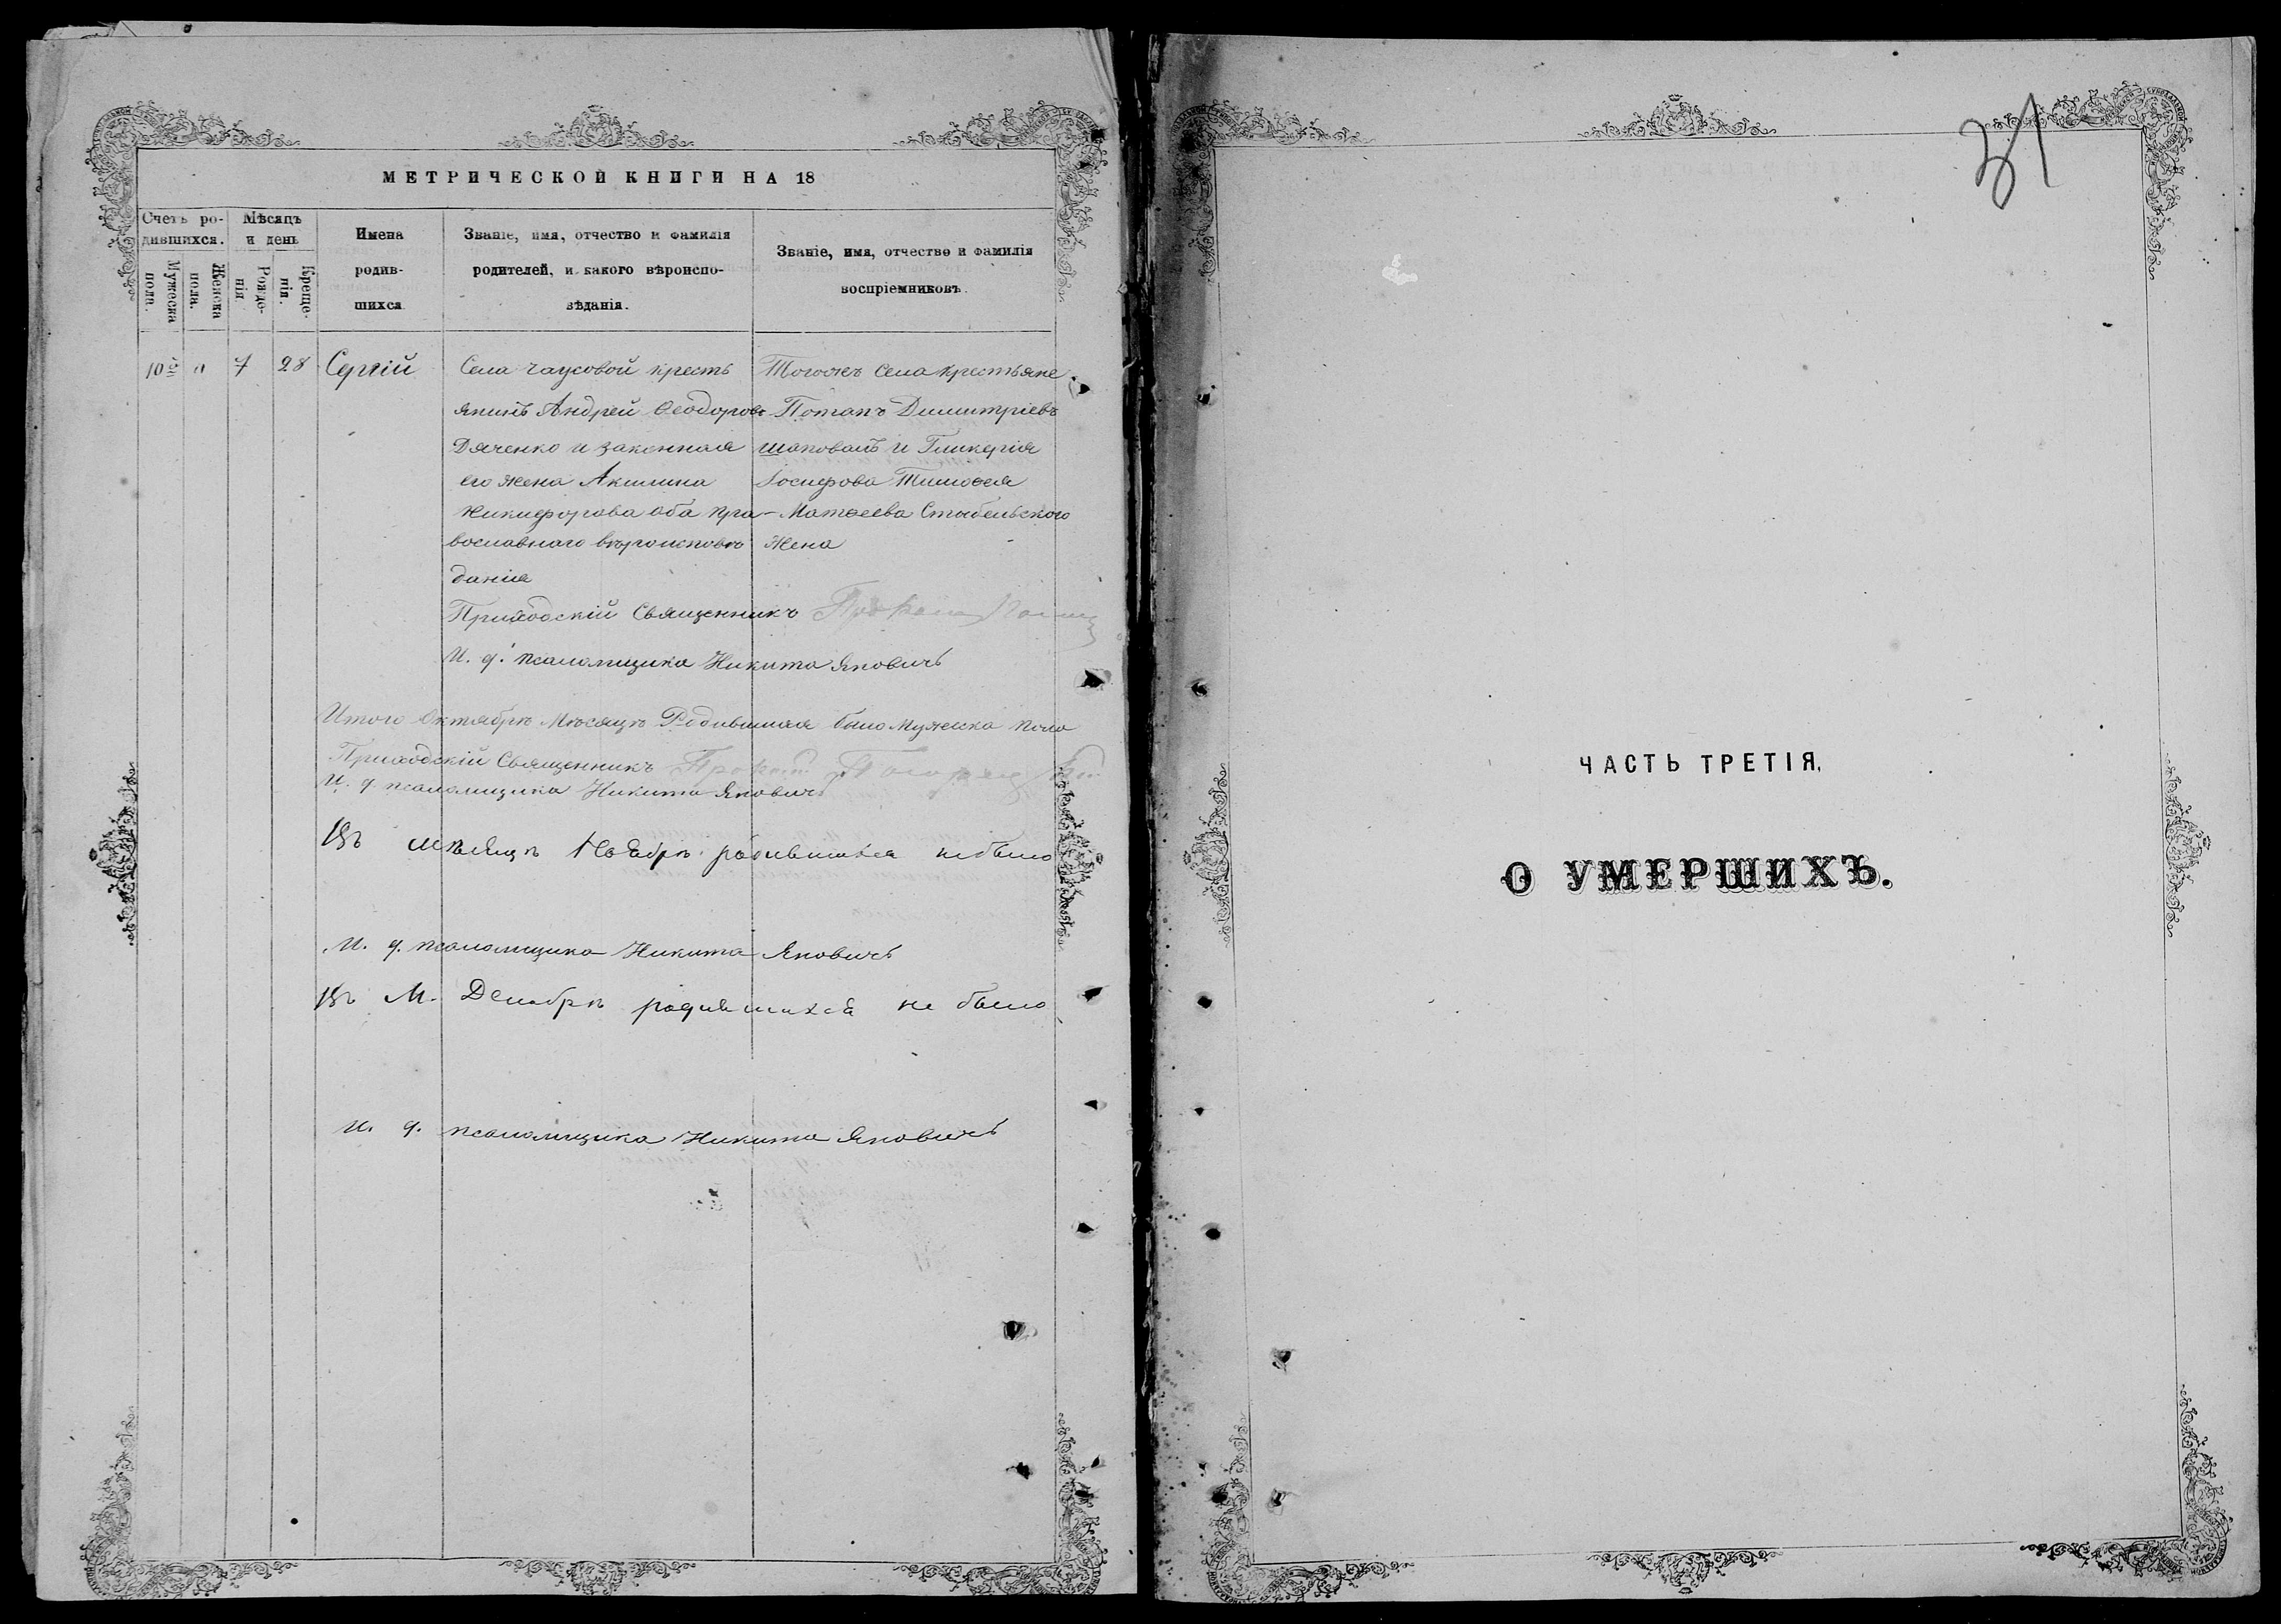 МЕТРИЧЕСКОЙ КНИГИ НА 18
Счетъ ро-
дившихся.
Мужеска
пола
Женска
пола.
Мѣсяцъ
и день
Рождо-
нія
Креще-
нія.
Имена
родив-
шихся
Званіе, имя, отчество и фамилія
родителей, и какого вѣроиспо-
вѣданія.
Званіе, имя, отчество и фамилія
воспріемниковъ.
10й 7 28 Сергій
Села Чаусовой кресть
янинъ Андрей Ѳеодоровъ
Дяченко и законная
его жена Акилина
Никифорова оба пра-
вославнаго вѣроисповѣ
данія
Тогожъ села крестьяне
Потапъ Димитріевъ
Шаповалъ и Гликерія
Іосифова Тимоѳея
Матѳеева Стыбельского
жена
Приходскій Священникъ
И. д. псаломщика Никита Яновичъ
Итого Октябрѣ Мѣсяцѣ Родившихся было Мужеска пола
Приходскій Священникъ
И. д. псаломщика Никита Яновичъ
Въ мѣсяцѣ Ноябрѣ родившихся небыло
И. д. псаломщика Никита Яновичъ
Въ М. Декабрѣ родившихся не было
И. д. псаломщика Никита Яновичъ
31
ЧАСТЬ ТРЕТІЯ,
О УМЕРШИХЪ.